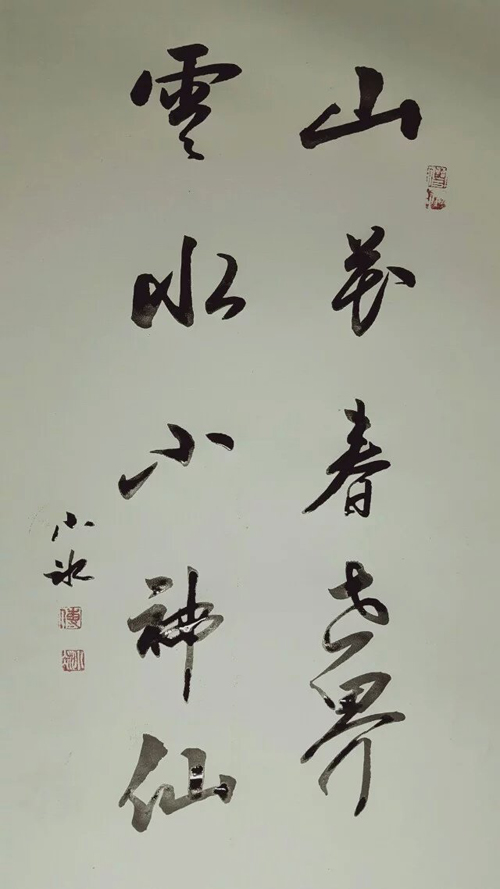 山花春世界
雲水小神仙
小冰